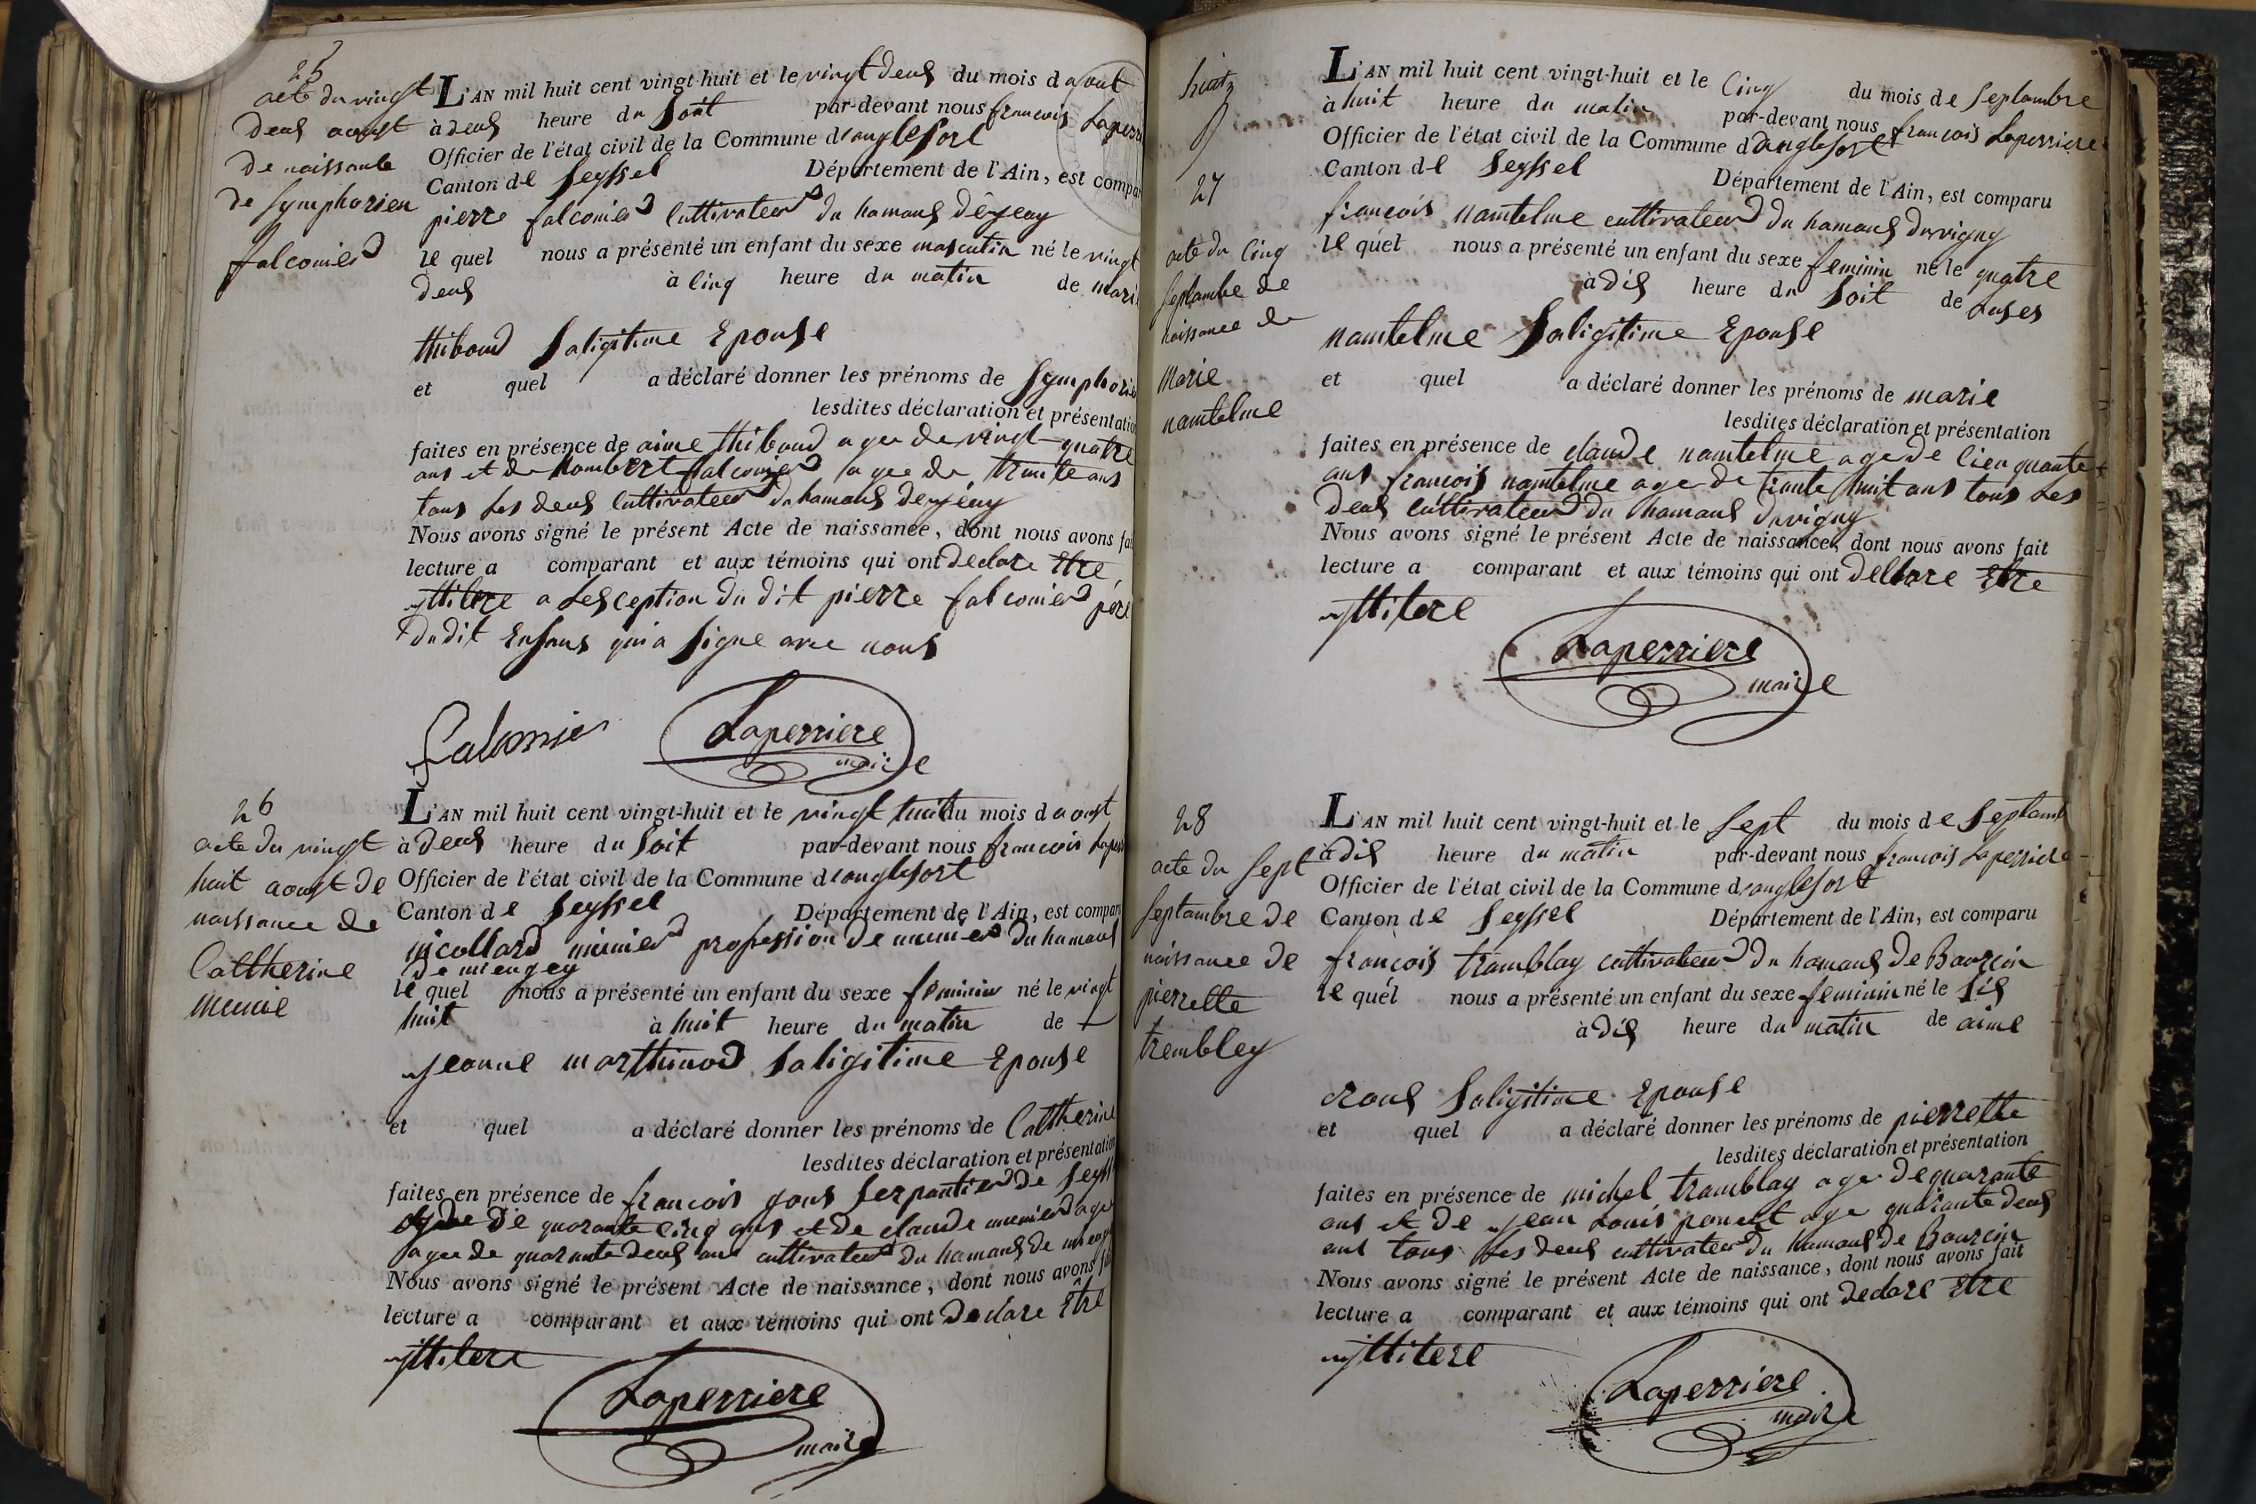 25
acte du vingt
deux aoust
de naissance
de Symphorien
falconier
L'AN mil huit cent vingt-huit et le vingt deux du mois d aout
à deux heure du soit par-devant nous francois Laperri
Officier de l'état civil de la Commune d'anglefort
Canton de Seyssel Département de l'Ain, est compar
pierre falconier cultivateur du hamaux
le quel nous a présenté un enfant du sexe masculin né le vingt
deux à cinq heure du matin de mari
thiboud Saligitime Epouse
et quel a déclaré donner les prénoms de Symphorien
lesdites déclaration et présentation
faites en présence de aime thiboud agee de vingt-quatre
ans et de humbert falconier agee de trante ans
tous les deux cultivateur du hamaux
Nous avons signé le présent Acte de naissance, dont nous avons fai
lecture a comparant et aux témoins qui ont declare Etre
ylliterre a lesception du dit pierre falconier père
dudit Enfans qui a signe avec nous
falconnier Laperriere
maire
26
acte du vingt
huit aoust de
naissance de
Catherine
munie
L'AN mil huit cent vingt-huit et le vingt huit du mois d aoust
à deux heure du soit par-devant nous francois Laper
Officier de l'état civil de la Commune d'anglefort
Canton de Seyssel Département de l'Ain, est compar
nicollard munier profession de munier du hamaux
de
le quel nous a présenté un enfant du sexe feminin né le vingt
huit à huit heure du matin de
jeanne marthinod Saligitime Epouse
et quel a déclaré donner les prénoms de Catherine
lesdites déclaration et présentation
faites en présence de francois de Seyss
de quarante cinq ans et de claude munier age
agee de quarante deux ans cultivateur du hamaux de
Nous avons signé le présent Acte de naissance, dont nous avons fai
lecture a comparant et aux témoins qui ont declare Être
ylliterre
Laperriere
maire
27
acte du cinq
septambe de
naissance de
Marie
namtelme
L'AN mil huit cent vingt-huit et le cinq du mois de septambre
à huit heure du matin par-devant nous francois Laperriere
Officier de l'état civil de la Commune d'anglefort
Canton de Seyssel Département de l'Ain, est comparu
francois namtelme cultivateur du hamaux
le quel nous a présenté un enfant du sexe feminin né le quatre
à dix heure du soit de
namtelme Saligitime Epouse
et quel a déclaré donner les prénoms de marie
lesdites déclaration et présentation
faites en présence de claude namtelme age de cinquante
ans francois namtelme age de trante huit ans tous les
deux cultivateur du hamaux
Nous avons signé le présent Acte de naissance, dont nous avons fait
lecture a comparant et aux témoins qui ont declare Etre
ylliterre
Laperriere
maire
28
acte du sept
septambre de
naissance de
pierrette
trembley
L'AN mil huit cent vingt-huit et le sept du mois de septamb
à dix heure du matin par-devant nous francois Laperriere
Officier de l'état civil de la Commune d'anglefort
Canton de Seyssel Département de l'Ain, est comparu
francois tramblay cultivateur du hamaux de Bourcin
le quel nous a présenté un enfant du sexe feminin né le six
à dix heure du matin de aime
Saligitime Epouse
et quel a déclaré donner les prénoms de pierrette
lesdites déclaration et présentation
faites en présence de michel tramblay age de quarante
ans et de jean Louis age quarante deux
ans tous les deux cultivateur du hamaux de Bourcin
Nous avons signé le présent Acte de naissance, dont nous avons fait
lecture a comparant et aux témoins qui ont declare Etre
ylliterre
Laperriere
maire